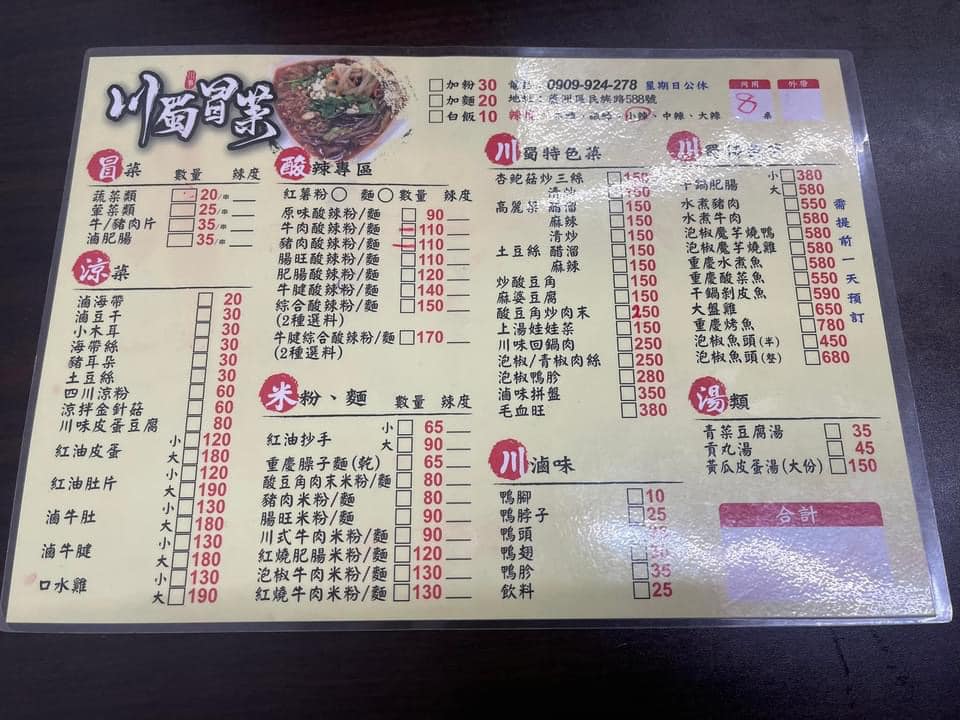 川蜀冒菜
加粉 30
加麵 20
白飯 10
0909-924-278 星期日公休
蘆洲區民族路588號
小辣、中辣、大辣
內用 外帶
8 桌
冒菜 數量 辣度
蔬菜類 20/串
葷菜類 25/串
牛/豬肉片 35/串
滷肥腸 35/串
涼菜
滷海帶 20
滷豆干 30
小木耳 30
海帶絲 30
豬耳朵 30
土豆絲 30
四川涼粉 60
涼拌金針菇 60
川味皮蛋豆腐 80
紅油皮蛋 小 120
大 180
紅油肚片 小 120
大 190
滷牛肚 小 130
大 180
滷牛腱 小 130
大 180
口水雞 小 130
大 190
酸辣專區
紅薯粉 麵 數量 辣度
原味酸辣粉/麵 90
牛肉酸辣粉/麵 110
豬肉酸辣粉/麵 110
腸旺酸辣粉/麵 110
肥腸酸辣粉/麵 120
牛腱酸辣粉/麵 140
綜合酸辣粉/麵 150
(2種選料)
牛腱綜合酸辣粉/麵 170
(2種選料)
米粉、麵 數量 辣度
紅油抄手 小 65
大 90
重慶臊子麵(乾) 65
酸豆角肉末米粉/麵 80
豬肉米粉/麵 80
腸旺米粉/麵 90
川式牛肉米粉/麵 90
紅燒肥腸米粉/麵 120
泡椒牛肉米粉/麵 130
紅燒牛肉米粉/麵 130
川蜀特色菜
杏鮑菇炒三絲 150
清炒 150
高麗菜 醋溜 150
麻辣 150
清炒 150
土豆絲 醋溜 150
麻辣 150
炒酸豆角 150
麻婆豆腐 150
酸豆角炒肉末 250
上湯娃娃菜 150
川味回鍋肉 250
泡椒/青椒肉絲 250
泡椒鴨胗 280
滷味拼盤 350
毛血旺 380
川滷味
鴨腳 10
鴨脖子 25
鴨頭
鴨翅
鴨胗 35
飲料 25
干鍋肥腸 小 380
大 580
水煮豬肉 550
水煮牛肉 580
泡椒魔芋燒鴨 580
泡椒魔芋燒雞 580
重慶水煮魚 580
重慶酸菜魚 550
干鍋剝皮魚 590
大盤雞 650
重慶烤魚 780
泡椒魚頭(半) 450
泡椒魚頭(整) 680
需提前一天預訂
湯類
青菜豆腐湯 35
貢丸湯 45
黃瓜皮蛋湯(大份) 150
合計